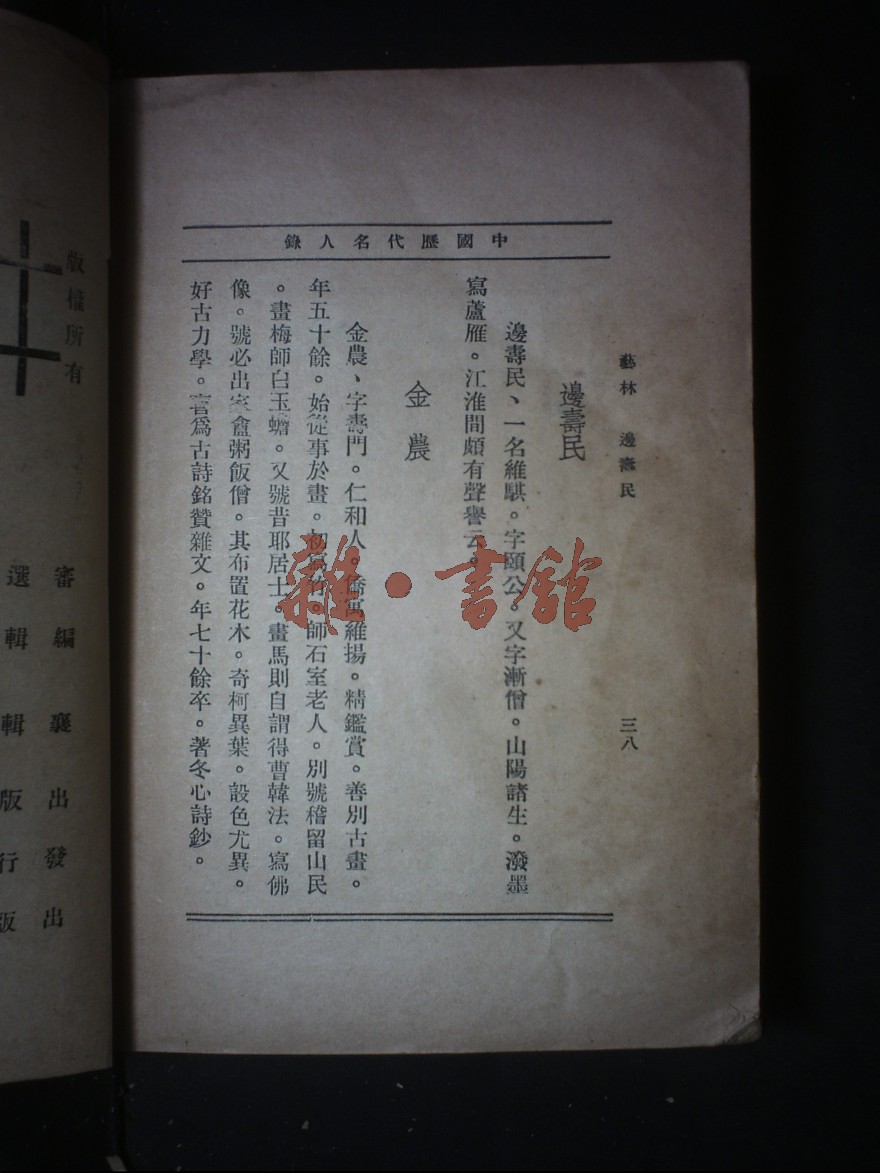 中國歷代名人錄
藝林 邊壽民 三八
邊壽民
邊壽民、一名維騏。字頤公。又字漸僧。山陽諸生。潑墨
寫蘆雁。江淮間頗有聲譽云。
金農
金農、字壽門。仁和人。僑寓維揚。精鑑賞。善別古畫。
年五十餘。始從事於畫。初寫竹。師石室老人。別號稽留山民
。畫梅師白玉蟾。又號昔耶居士。畫馬則自謂得曹韓法。寫佛
像。號必出 盦粥飯僧。其布置花木。奇柯異葉。設色尤異。
好古力學。 爲古詩銘贊雜文。年七十餘卒。著冬心詩鈔。
雜·書館
版權所有
審 編 襄 出 發 出
選 輯 輯 版 行 版